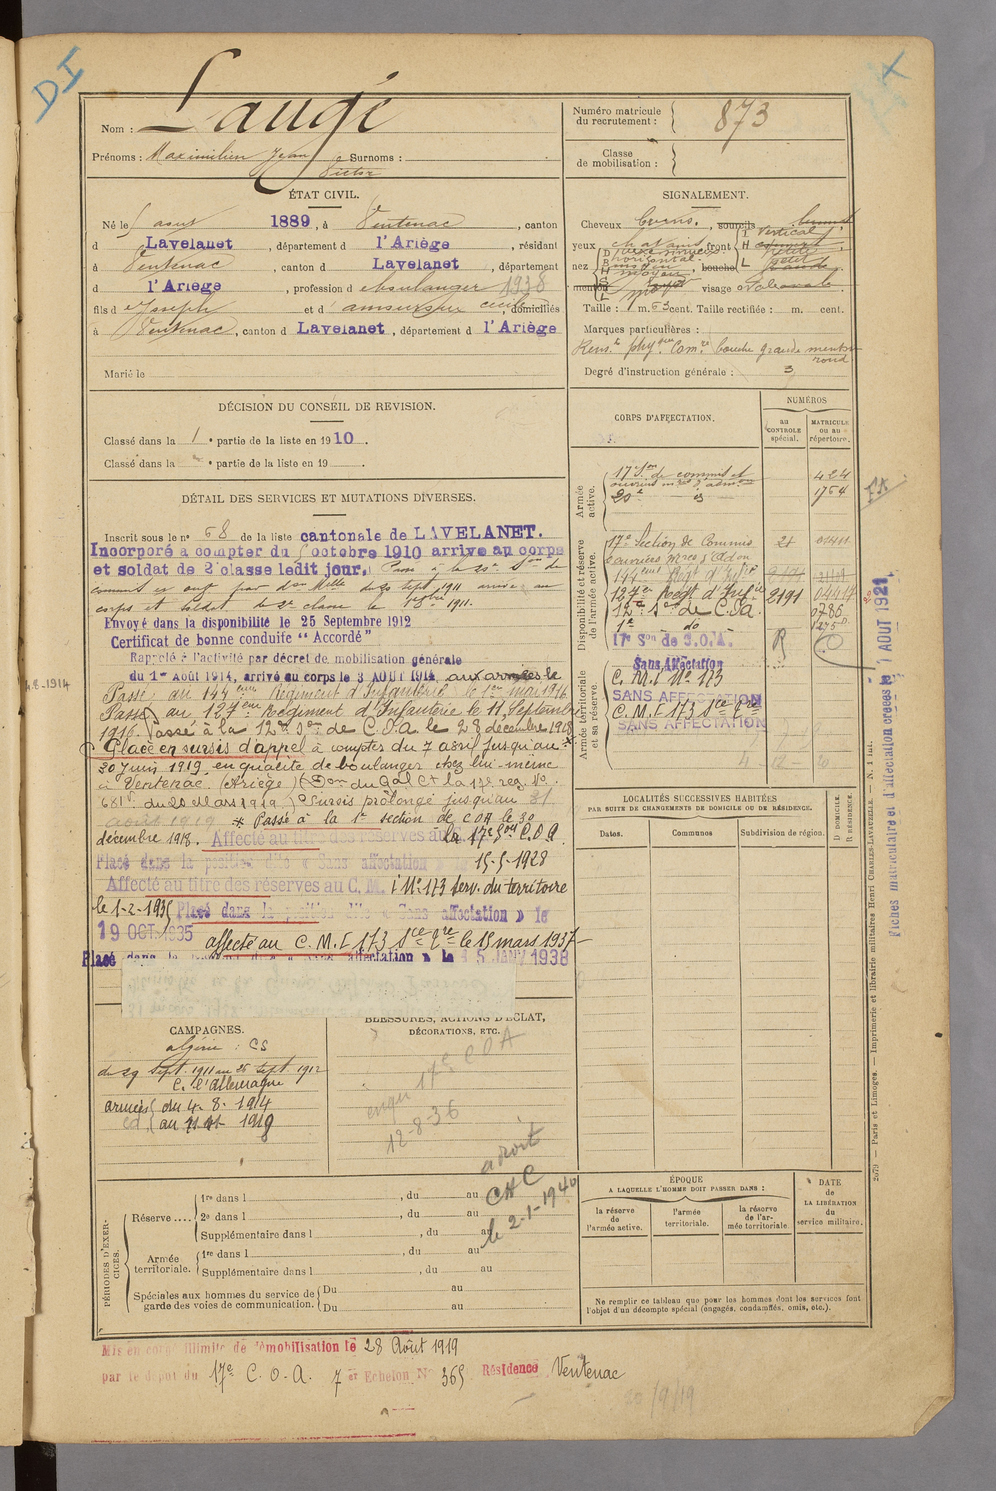 DI
Nom : Laugé
Prénoms : Maximilien Jean Surnoms :
Victor
Numéro matricule
du recrutement : 873
Classe
de mobilisation :
ÉTAT CIVIL.
Né le 5 aout 1889, à Ventenac, canton
d Lavelanet, département d l'Ariège, résidant
à Ventenac, canton d Lavelanet, département
d l'Ariège, profession d boulanger 1938
fils d Joseph et d cécile, domiciliés
à Ventenac, canton d Lavelanet, département d l'Ariège
Marié le
SIGNALEMENT.
Cheveux bruns, sourcils
yeux chatains front vertical
nez horizontal bouche grande
menton visage
Taille : 1 m. 63 cent. Taille rectifiée : m. cent.
Marques particulières :
Rens.ts phyques Comre bouche grande menton
rond
Degré d'instruction générale : 3
DÉCISION DU CONSEIL DE REVISION.
Classé dans la 1e partie de la liste en 1910.
Classé dans la e partie de la liste en 19
DÉTAIL DES SERVICES ET MUTATIONS DIVERSES.
Inscrit sous le no 68 de la liste cantonale de LAVELANET.
Incorporé a compter du octobre 1910 arrivé au corps
et soldat de 2e classe ledit jour. Passé à la
sept 1911 arrivé au
corps et soldat de 2e classe le 1911.
Envoyé dans la disponibilité le 25 Septembre 1912
Certificat de bonne conduite "Accordé"
Rappelé à l'activité par décret de mobilisation générale
du 1er Août 1914, arrivé au corps le 3 AOUT 1914, aux armées le
4-8-1914
Passé au 144eme Régiment d'Infanterie le 1er mai 1916
Passé au 127eme Régiment d'Infanterie le 11 Septembre
1916. Passé à la 12e Son de C.O.A le 28 décembre 1918
Placé en sursis d'appel à compter du 7 avril jusqu'au
30 Juin 1919 en qualité de boulanger chez lui-même
à Ventenac (Ariège) (Don du Gal Ct la 17e reg. No
681 du 28 Mars 1919) Sursis prolongé jusqu'au 31
août 1919 * Passé à la 1e section de COA le 30
décembre 1918. Affecté au titre des réserves au la 17e Son C.O.A.
Placé dans la position dite « Sans affectation » 15-5-1928
Affecté au titre des réserves au C. M. I No 173 Serv. du territoire
le 1-2-1935 Placé dans la position dite « Sans affectation » le
19 OCT. 1935 affecté au C. M. I 173 le 15 mars 1937
Placé dans la position dite « Sans affectation » le 15 JANV 1938
CORPS D'AFFECTATION.
NUMÉROS
au
CONTROLE
spécial.
MATRICULE
ou au
répertoire.
Armée
active.
17 Son de commis et
ouvriers 424
20e do 1764
Disponibilité et réserve
de l'armée active.
17e Section de Commis
144eme Regt d'Infie
127e Regt d'Infie 2191 04417
12e Son de C.O.A. 0786
1e do
17e Son de C.O.A. R
Armée territoriale
et sa réserve
Sans Affectation
C. M. I No 173
SANS AFFECTATION
C. M. I 173
SANS AFFECTATION
Fiches matriculaire et d'affectation créées le 1 AOUT 1921
LOCALITÉS SUCCESSIVES HABITÉES
PAR SUITE DE CHANGEMENTS DE DOMICILE OU DE RÉSIDENCE.
Dates.
Communes
Subdivision de région.
D DOMICILE
R RÉSIDENCE.
CAMPAGNES.
algérie : CS
du 29 Sept. 1911 au 25 Sept. 1912
C. l'allemagne
armées du 4-8-1914
au 1919
BLESSURES, ACTIONS D'ÉCLAT,
DÉCORATIONS, ETC.
17e COA
12-8-36
a droit
CAC
le 2-1-1940
PÉRIODES D'EXER-
CICES.
Réserve....
1re dans l , du au
2e dans l , du au
Supplémentaire dans l , du au
Armée
territoriale.
1re dans l , du au
Supplémentaire dans l , du au
Spéciales aux hommes du service de
garde des voies de communication.
Du au
Du au
ÉPOQUE
A LAQUELLE L'HOMME DOIT PASSER DANS :
la réserve
de
l'armée active.
l'armée
territoriale.
la réserve
de l'ar-
mée territoriale
DATE
de
LA LIBÉRATION
du
service militaire.
Ne remplir ce tableau que pour les hommes dont les services font
l'objet d'un décompte spécial (engagés, condamnés, omis, etc.).
2079 — Paris et Limoges. — Imprimerie et librairie militaires Henri CHARLES-LAVAUZELLE.
Mis en congé illimité de démobilisation le 28 Août 1919
par le dépôt du 17e C. O. A. 7er Echelon No 365 Résidence Ventenac
20/9/19